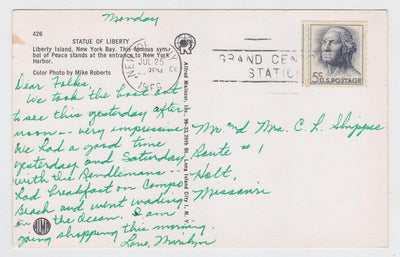 Monday
426
STATUE OF LIBERTY
Liberty Island, New York Bay. This famous sym-
bol of Peace stands at the entrance to New York
Harbor.
Color Photo by Mike Roberts
Dear Folks,
We took the boat out
to see this yesterday after
noon -- very impressive.
We had a good time
yesterday and Saturday
with the Pendlemans --
had breakfast on Compo
Beach and went wading
in the Ocean. I am
going shopping this morning.
Love, Marilyn
Alfred Mainzer, Inc. Long Island City 1, N. Y.
NEW YORK
JUL 25
PM
GRAND CEN
STATIO
5¢ U.S. POSTAGE
Mr. and Mrs. C. L. Shippee
Route #1
Holt,
Missouri